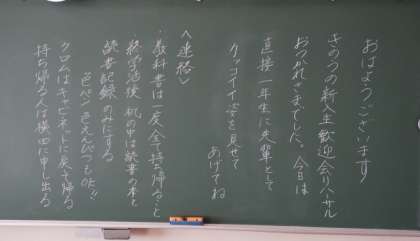 おはようございます!
きのうの新入生歓迎会リハーサル
おつかれさまでした。今日は
直接一年生に先輩として
カッコイイ姿を見せて
あげてね
〈連絡〉
・教科書は一度、全て持ち帰ること
終学活後、机の中は読書の本と
読書記録のみにする
色ペン色えんぴつもOK!!
クロムはキャビネットに戻して帰る
持ち帰る人は横田に申し出る